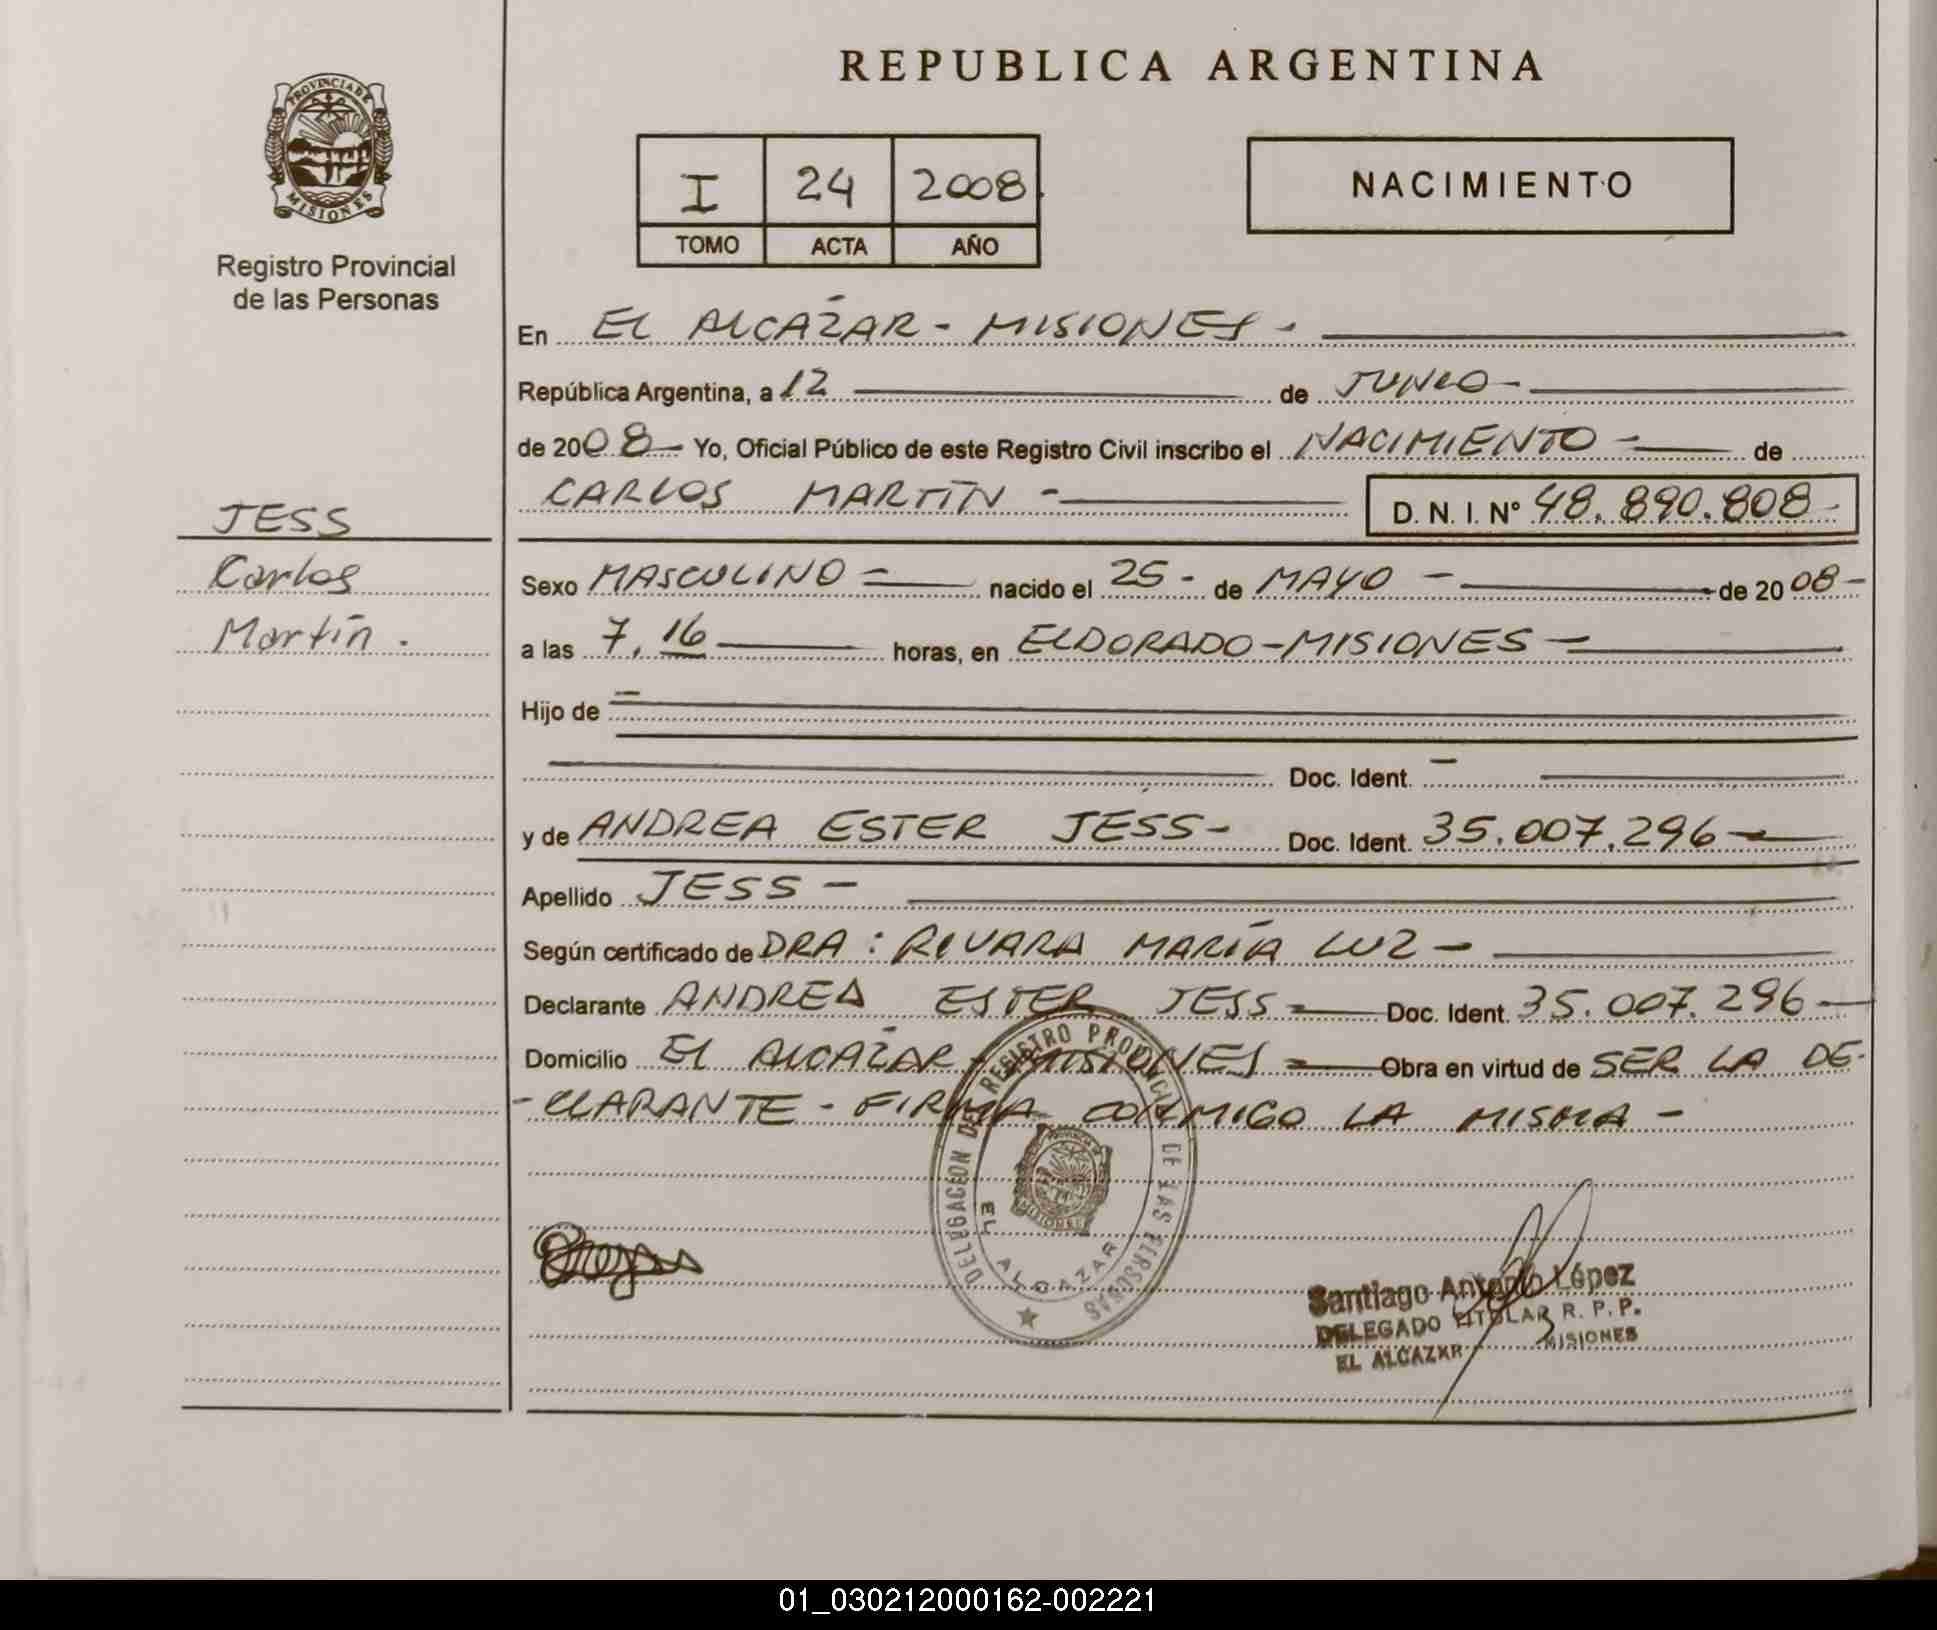 REPUBLICA ARGENTINA
PROVINCIA DE
MISIONES
Registro Provincial
de las Personas
I 24 2008
TOMO ACTA AÑO
NACIMIENTO
En EL ALCAZAR - MISIONES -
República Argentina, a 12 de JUNIO -
de 2008 - Yo, Oficial Público de este Registro Civil inscribo el NACIMIENTO - de
CARLOS MARTÍN - D. N. I. N° 48.890.808 -
JESS
Carlos
Martín .
Sexo MASCULINO - nacido el 25 - de MAYO - de 2008 -
a las 7,16 horas, en ELDORADO - MISIONES -
Hijo de -
Doc. Ident. -
y de ANDREA ESTER JESS - Doc. Ident. 35.007.296 -
Apellido JESS -
Según certificado de DRA : RIVARA MARÍA LUZ -
Declarante ANDREA ESTER JESS - Doc. Ident. 35.007.296 -
Domicilio EL ALCAZAR - MISIONES - Obra en virtud de SER LA DE-
-CLARANTE - FIRMA CONMIGO LA MISMA -
DELEGACION DEL REGISTRO PROVINCIAL DE LAS PERSONAS
EL ALCAZAR
MISIONES
Santiago Antonio López
DELEGADO TITULAR R. P. P.
EL ALCAZAR MISIONES
01_030212000162-002221